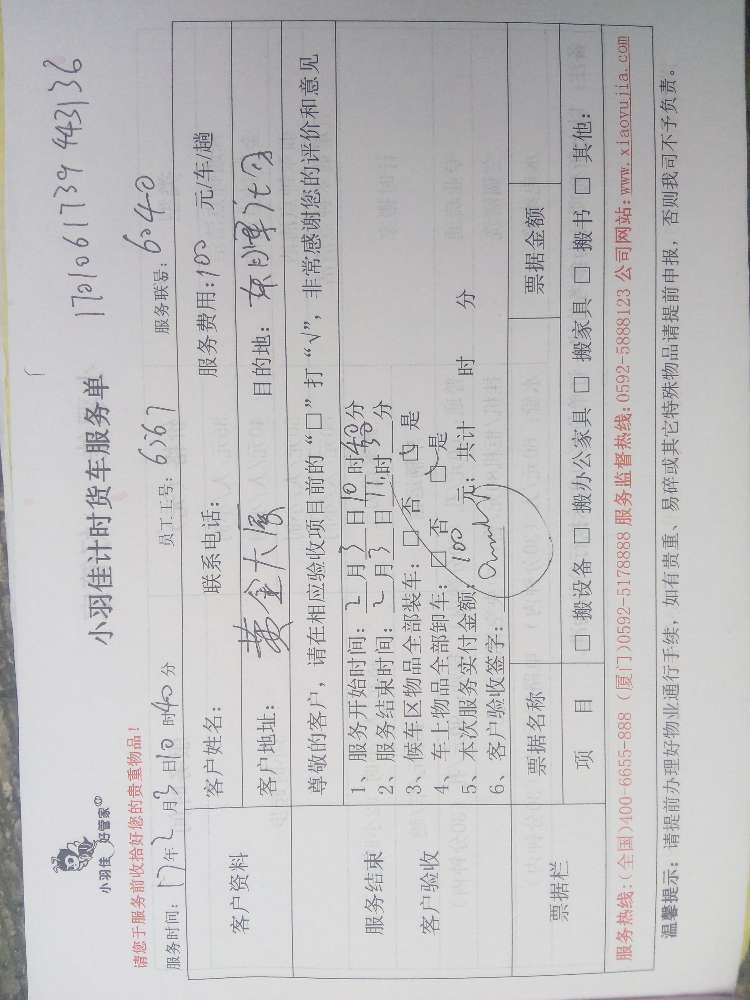 小羽佳 好管家
小羽佳计时货车服务单
1701061739443136
请您于服务前收拾好您的贵重物品！
服务时间：17年2月3日10时40分 员工工号：6567 服务联号：6040
客户资料
客户姓名： 联系电话： 服务费用：100 元/车/趟
客户地址：黄金大厦 目的地：
尊敬的客户，请在相应验收项目前的“□”打“√”，非常感谢您的评价和意见
服务结束
客户验收
1、服务开始时间：2月3日10时40分
2、服务结束时间：2月3日11时 分
3、候车区物品全部装车：□ 否 □ 是
4、车上物品全部卸车：□ 否 □ 是
5、本次服务实付金额：100 元；共计 时 分
6、客户验收签字：
票据栏
票据名称 票据金额
项 目 □ 搬设备 □ 搬办公家具 □ 搬家具 □ 搬书 □ 其他：
服务热线：(全国)400-6655-888 (厦门)0592-5178888 服务监督热线：0592-5888123 公司网站：www.xiaoyujia.com
温馨提示：请提前办理好物业通行手续，如有贵重、易碎或其它特殊物品请提前申报，否则我司不予负责。